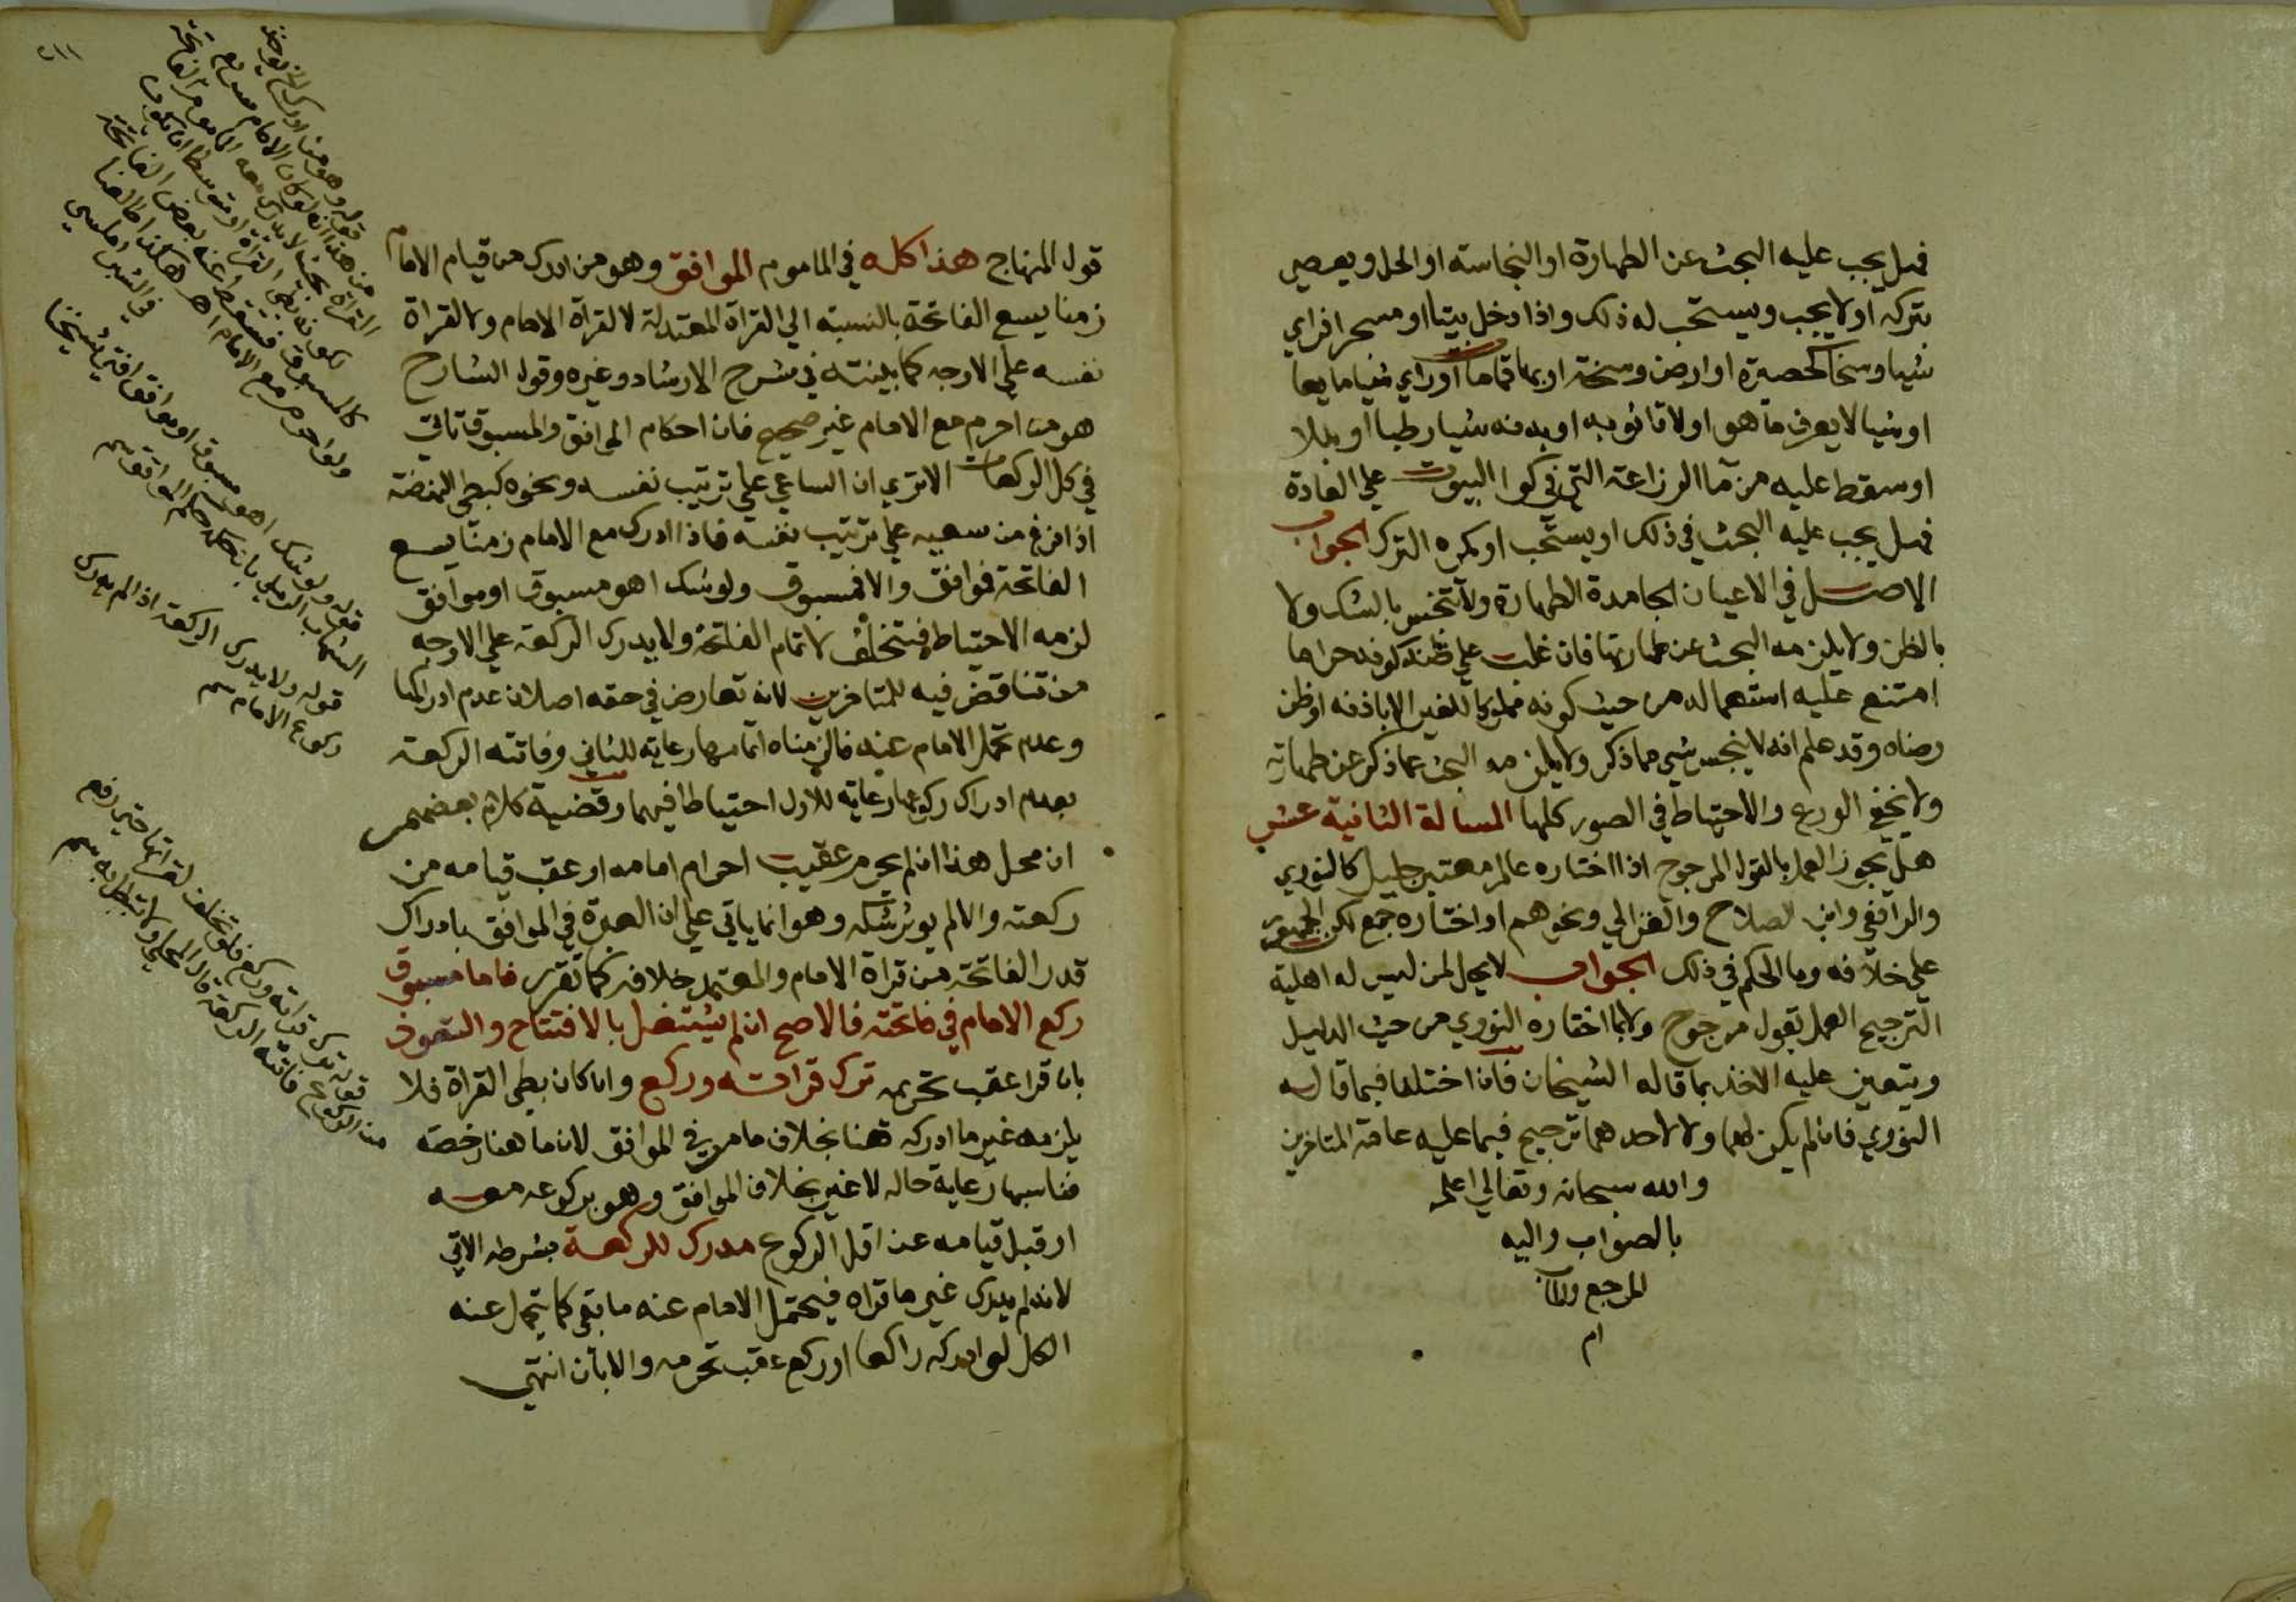 فهل يجب عليه البحث عن الطهارة او النجاسة او الحل ويعصي
بتركه او لا يجب ويستحب له ذلك واذا دخل بيتا او مسجرا فراي
شيا وسخا كحصيرة او ارض وسخة او بها قمامات او راي شيا مايعا
او شيا لا يعرف ما هو او لاقا ثوبه او بدنه شيا رطبا او بللا
او سقط عليه من ما الرزاعة التي في كوا البيوت علي العادة
فهل يجب عليه البحث في ذلك او يستحب او يكره الترك الجواب
الاصل في الاعيان الجامدة الطهارة ولا تنجس بالشك ولا
بالظن ولا يلزمه البحث عن طهارتها فان غلب علي ظنه كونه حراما
امتنع عليه استعماله من حيث كونه مملوكا للغير الا باذنه او ظن
رضاه وقد علم انه لا ينجس شي مما ذكر ولا يلزمه البحث عما ذكر عن طهارته
ولا يخفي الورع والاحتياط في الصور كلها المسالة الثانية عشر
هل يجوز العمل بالقول المرجوح اذا اختاره عالم معتبر جليل كالنووي
والرافعي وابن الصلاح والغزالي ونحوهم او اختاره جمع لكن الجمهور
علي خلافه وما الحكم في ذلك الجواب لا يحل لمن ليس له اهلية
الترجيح العمل بقول مرجوح ولا بما اختاره النووي من حيث الدليل
ويتعين عليه الاخذ بما قاله الشيخان فان اختلفا فبما قاله
النووي فان لم يكن لهما ولا لاحدهما ترجيح فبما عليه عامة المتاخرين
والله سبحانه وتعالي اعلم
بالصواب واليه
المرجع والمآب
ام
قول المنهاج هذا كله في الماموم الموافق وهو من ادرك من قيام الامام
زمنا يسع الفاتحة بالنسبة الي القراة المعتدلة لا لقراة الامام ولا لقراة
نفسه علي الاوجه كما بينته في شرح الارشاد وغيره وقول الشارح
هو من احرم مع الامام غير صحيح فان احكام الموافق والمسبوق تاتي
في كل الركعات الا تري ان الساعي علي ترتيب نفسه ونحوه كبطي النهضة
اذا فرغ من سعيه علي ترتيب نفسه فاذا ادرك مع الامام زمنا يسع
الفاتحة فموافق والا فمسبوق ولو شك اهو مسبوق او موافق
لزمه الاحتياط فيتخلف لاتمام الفاتحة ولا يدرك الركعة علي الاوجه
من تناقض فيه للمتاخرين لانه تعارض في حقه اصلان عدم ادراكها
وعدم تحمل الامام عنه فالزمناه اتمامها رعاية للثاني وفاتته الركعة
بعدم ادراك ركوعها رعاية للاول احتياطا فيهما وقضية كلام بعضهم
ان محل هذا ان لم يحرم عقيب احرام امامه او عقب قيامه من
ركعته والا لم يوثر شكه وهو انما ياتي علي ان العبرة في الموافق بادراك
قدر الفاتحة من قراة الامام والمعتمد خلافه كما تقرر فاما مسبوق
ركع الامام في فاتحته فالاصح ان لم يشتغل بالافتتاح والتعوذ
بان قرا عقب تحرمه ترك قراته وركع وان كان بطي القراة فلا
يلزمه غير ما ادركه هنا بخلاف ما مر في الموافق لان ما هنا رخصة
فناسبها رعاية حاله لا غير بخلاف الموافق وهو بركوعه معه
او قبل قيامه عن اقل الركوع مدرك للركعة بشرطه الاتي
لانه لم يدرك غير ما قراه فيحتمل الامام عنه ما بقي كما يتحمل عنه
الكل لو ادركه راكعا او ركع عقب تحرمه والا بأن انتهي
قوله وهو من ادرك الخ يوخذ
من هذا انه لو كان الامام سريع
القراة بحيث لا يدرك معه الماموم الفاتحة
لكونه بطي القراة او متوسطا انه يكون
كالمسبوق فيسقط عنه بعض الفاتحة
ولو احرم مع الامام اهر هكذا
في الشبراملسي
قوله ولو شك اهو مسبوق او موافق افتي شيخنا
الشهاب الرملي بان حكمه حكم الموافق سم
قوله ولا يدرك الركعة اذا لم يدرك
ركوع الامام سم
قوله ترك قراته وركع فلو تخلف لقراتها حتي رفع
من الركوع فاتته الركعة قال المحلي ولا تبطل به سم